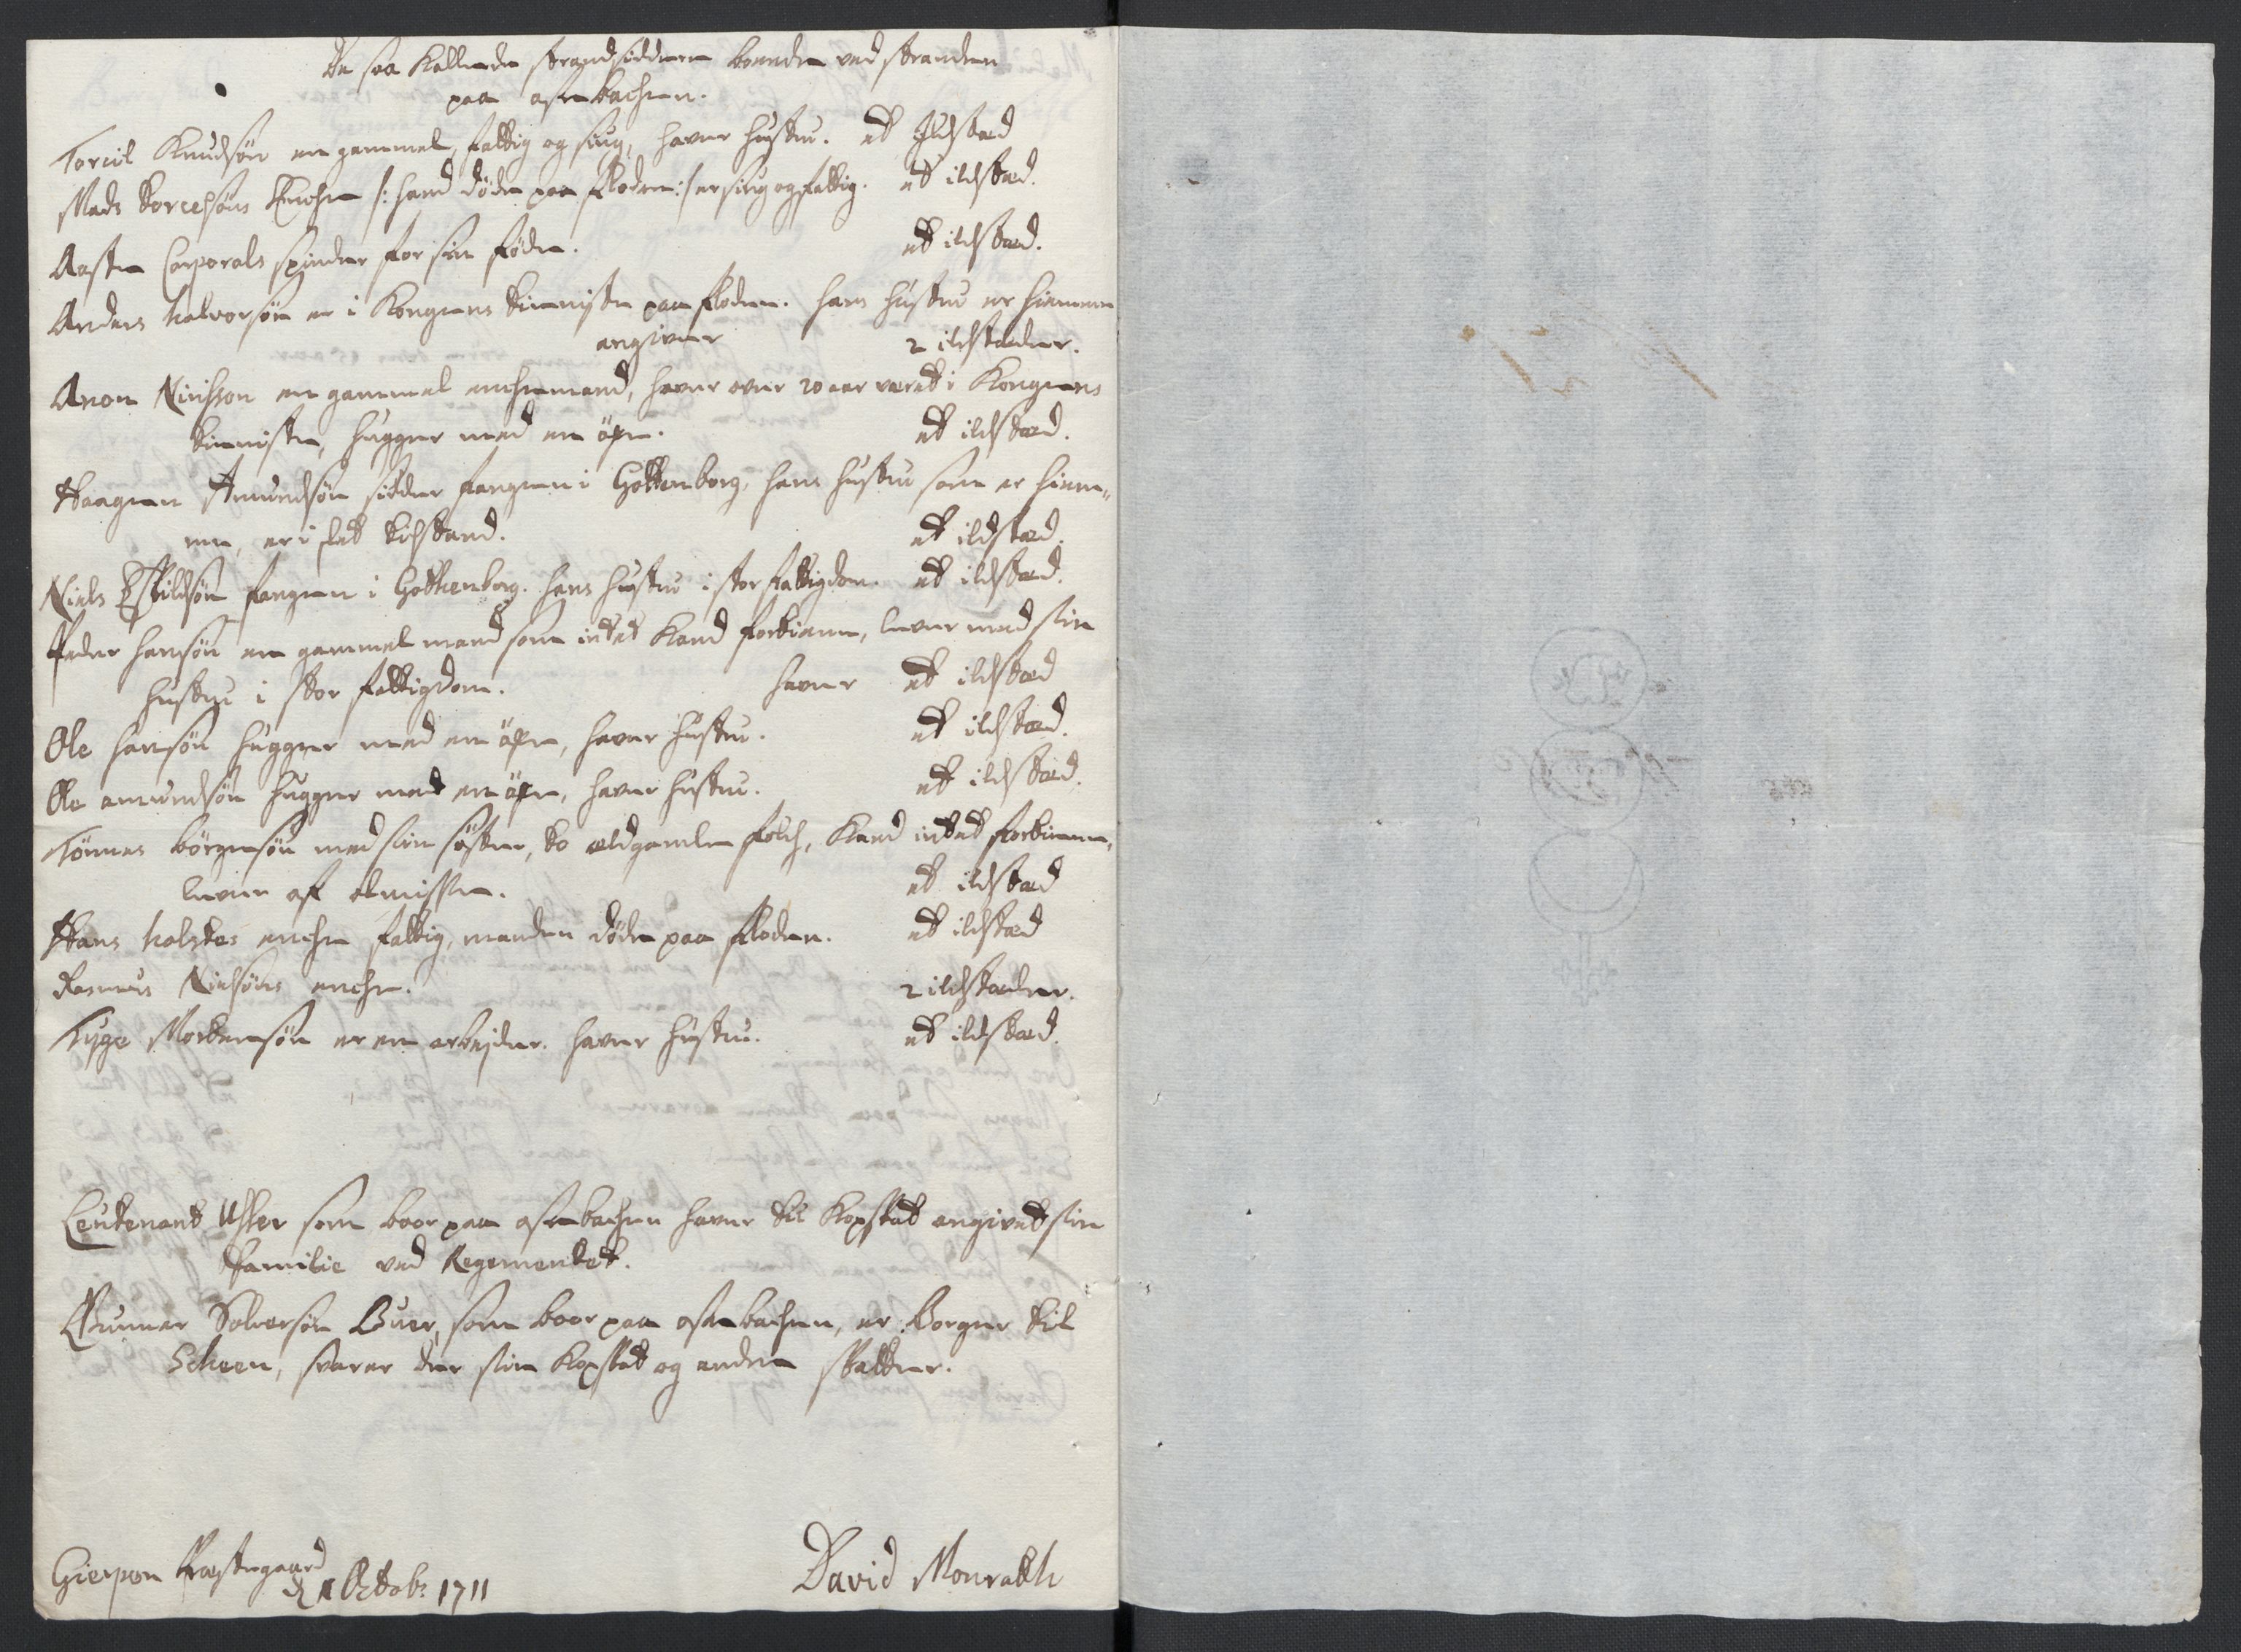 De saa kallede strandsiddere boende ved stranden
paa osebachen.
Torcil Knudsön en gammel, fattig og siug, haver hustru. et Ildstæd
Mads torcelsöns Enche /: hand döde paa floden :/ er siug og fattig. et ildstæd.
Aaste Corporals spinder for sin föde. et ildstæd.
Anders halvorsön er i Kongens tienniste paa floden. hans hustru er hiemme
angiver 2 ildstæder.
Aron Nielsson en gammel enchemand, haver over 20 aar været i Kongens
tienniste, hugger med en öxe. et ildstæd.
Haagen Amundsön sidder fangen i Gottenborg, hans hustru som er hiem„
me, er i slet tilstand. et ildstæd.
Niels Eskildsön fangen i Gottenborg. hans hustru i stor fattigdom. et ildstæd.
Peder hansön en gammel mand som intet kand fortiene, lever med sin
hustru i stor fattigdom. haver et ildstæd
Ole hansön hugger med en öxe, haver hustru. et ildstæd.
Ole amundsön hugger med en öxe, haver hustru. et ildstæd.
Tönnes börgesön med sin söster, to ældgamle folch, kand intet fortiene,
lever af almisse. et ildstæd
Hans holstes enche fattig, manden döde paa floden. et ildstæd
Rasmus Nielsöns enche. 2 ildstæder.
Tyge Mortensön er en arbejder. haver hustru. et ildstæd.
Leutenant Usler som boor paa osebachen haver til Kopskat angivet sin
Familie ved Regementet.
Gunner Solversön Buer, som boor paa osebachen, er Borger til
Scheen, svarer der sin Kopskat og andre skatter.
Gierpen Præstegaard
d. 1 Octobr: 1711
David Monrath